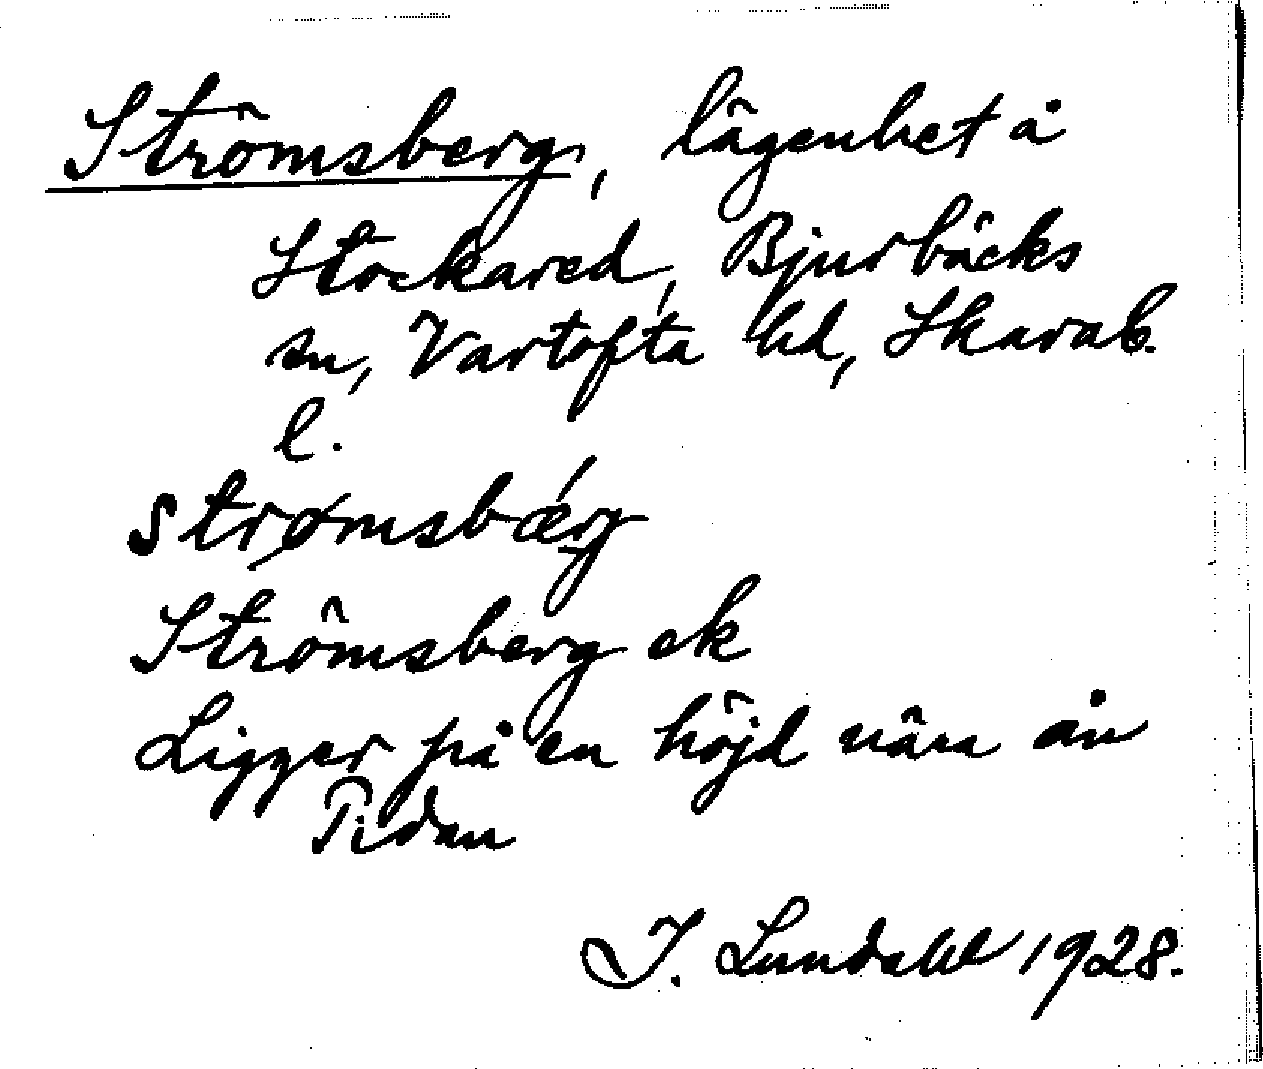 Strömsberg, lägenhet å
Stockared, Bjurbäcks
sn, Vartofta hd, Skarab.
l.
strømsbærg
Strömsberg ek
Ligger på en höjd nära ån
Tidan
I. Lundahl 1928.